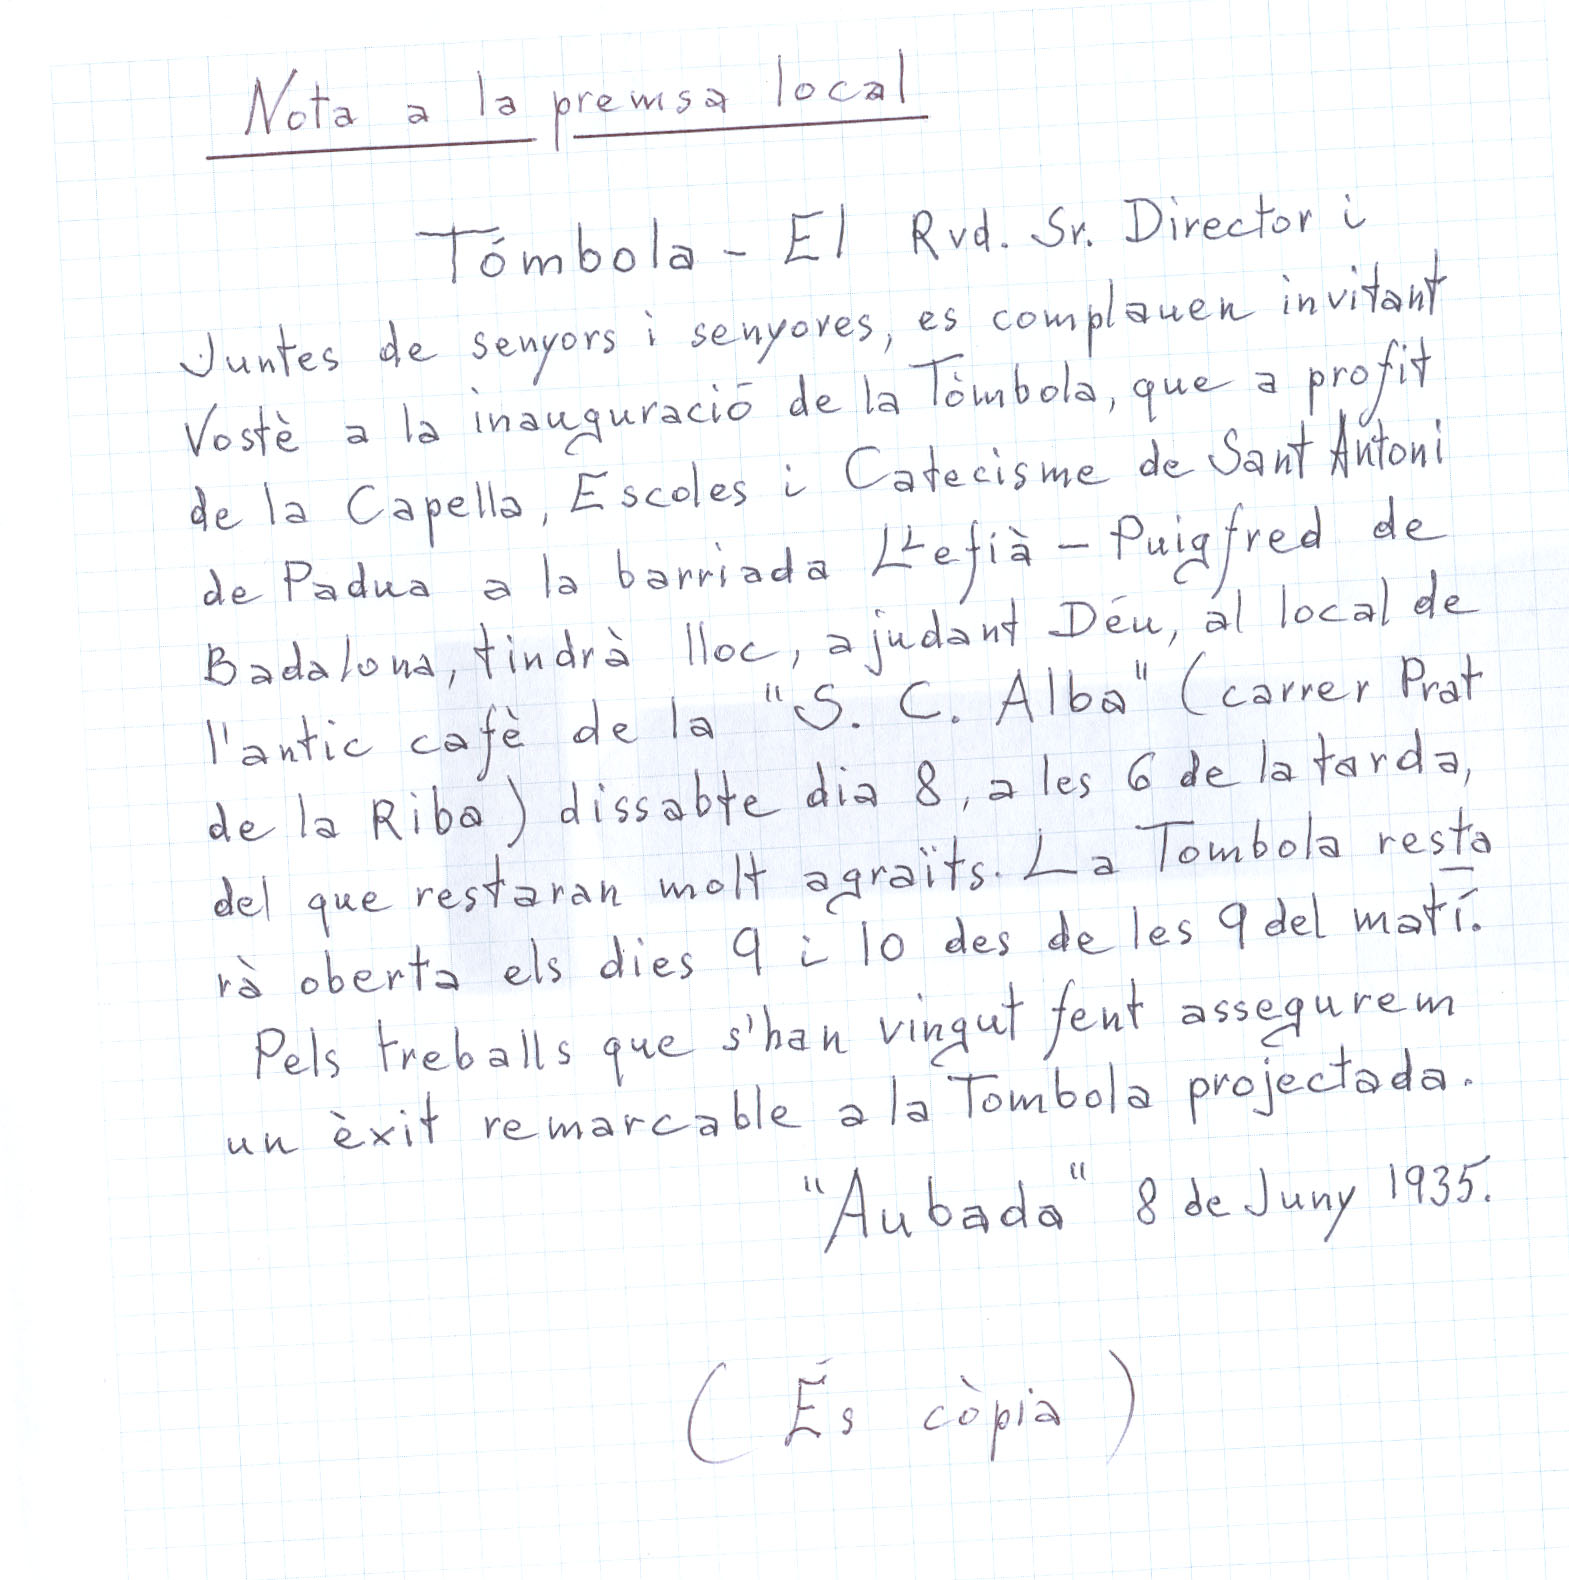 Nota a la premsa local
Tómbola - El Rvd. Sr. Director i
Juntes de senyors i senyores, es complauen invitant
Vostè a la inauguració de la Tómbola, que a profit
de la Capella, Escoles i Catecisme de Sant Antoni
de Padua a la barriada Llefià - Puigfred de
Badalona, tindrà lloc, ajudant Déu, al local de
l'antic cafè de la "S. C. Alba" (carrer Prat
de la Riba) dissabte dia 8, a les 6 de la tarda,
del que restaran molt agraïts. La Tombola resta
rà oberta els dies 9 i 10 des de les 9 del matí.
Pels treballs que s'han vingut fent assegurem
un èxit remarcable a la Tombola projectada.
"Aubada" 8 de Juny 1935.
(És còpia)